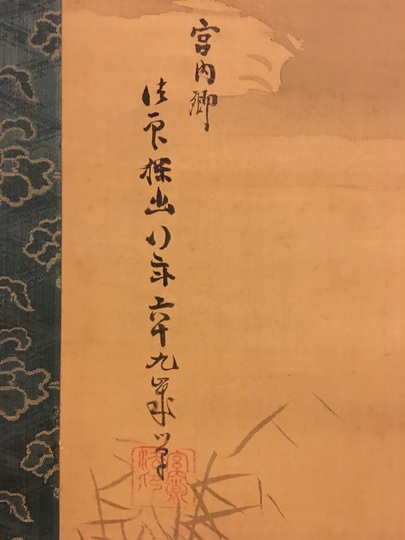 宮内卿
法印探幽行年六十九歳筆